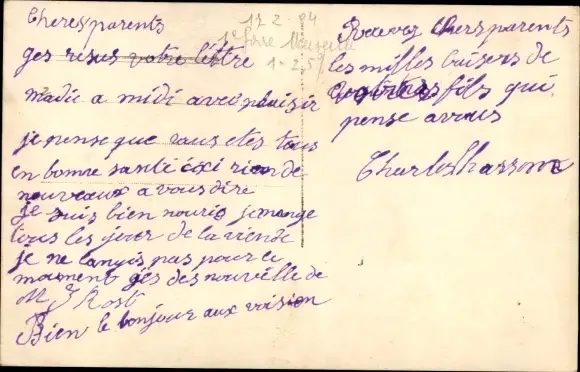 Cheres parents
ges resus votre lettre
madi a midi avec plaisir
je pense que vous etes tous
en bonne santé ici rien de
nouveaux a vous dire
je suis bien nouris je mange
tous les jours de la viende
je ne langis pas pour le
moument ges des nouvelle de
M J Rost
Bien le bonjour aux voision
17 2 04
Recevez chers parents
les milles baisers de
votre fils qui
pense a vous
Charles